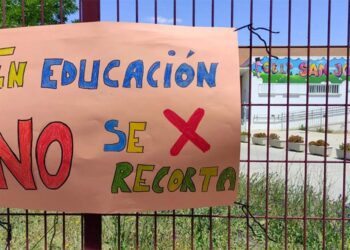 EN EDUCACIÓN
NO SE X
RECORTA
SAN